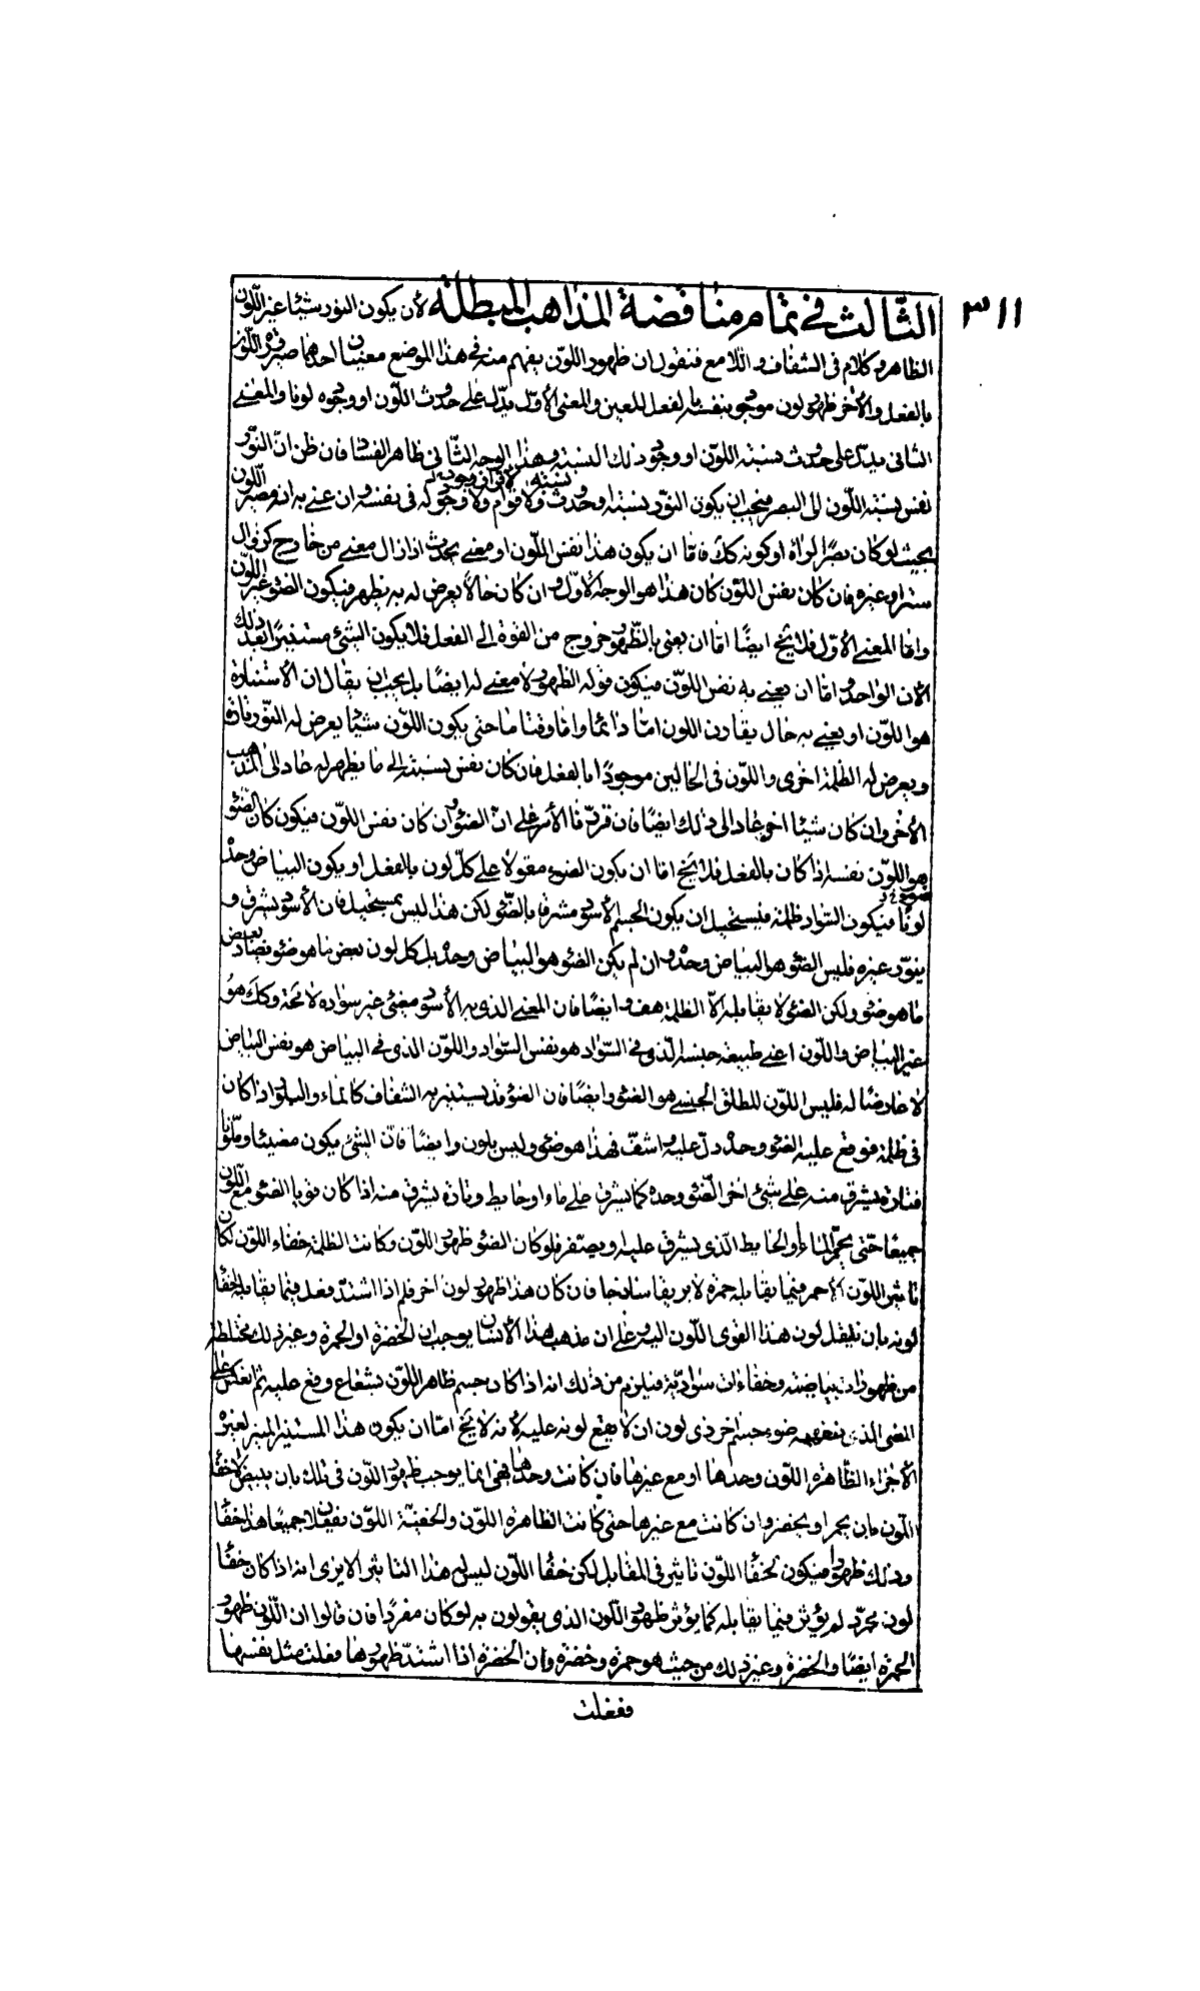 ٣١١
الثّالث في تمام مناقضة المذاهب المبطلة لأن يكون النور شيئا غير اللّون
الظاهر وكلام فى الشفاف واللامع فنقول ان ظهور اللّون يفهم منه فى هذا الموضع معنيان احدهما صيرورة اللّون
بالفعل والأخر ظهور لون موجود بنفسه بالفعل للعين والمعنى الأوّل يدّل على حدوث اللّون او وجوده لونا والمعنى
الثانى يدلّ على حدوث نسبته اللّون او وجود تلك النسبة وهذا الوجه الثّانى ظاهر الفساد فان ظن انّ النوّر
نفس نسبته اللّون الى البصر فيجب ان يكون النوّر نسبته او حدوث ولا قوام ولا وجود له فى نفسه وان عنى به انه مصير اللّون
بحيث لو كان بصرًا لراه او كونه كك فامّا ان يكون هذا نفس اللّون او معنى يحدث اذا زال معنى من خارج كزوال
ستر او غيره فان كان نفس اللّون كان هذا هو الوجه الأوّل وان كان حالاً يعرض له به يظهر فيكون الضوء غير اللّون
وامّا المعنى الأوّل فلا يخ ايضًا امّا ان يعنى بالظّهور خروج من القوة الى الفعل فلا يكون الشئ مستنيرًا بعد ذلك
الان الواحد وامّا ان يعنى به نفس اللّون فيكون قوله الظهور لا معنى له ايضًا بل يجب ان يقال ان الاستنارة
هو اللّون او يعنى به حال يقارن اللون امّا دائما وامّا وقتا ما حتى يكون اللّون شيئا يعرض له النوّر تارة
ويعرض له الظلمة اخرى واللّون فى الحالين موجودًا بالفعل فان كان نفس نسبته الى ما يظهر له عاد الى المذهب
الأخر وان كان شيئا اخر عاد الى ذلك ايضًا فان قرّرنا الأمر على انّ الضوء وان كان نفس اللّون فيكون كان الضّوء
هو اللّون نفسه اذا كان بالفعل فلا يخ امّا ان يكون الضوء مقولا على كلّ لون بالفعل او يكون البياض وحده
لونًا فيكون السّواد ظلمة فيستحيل ان يكون الجسم الأسود مشرقا بالضّوء لكن هذا ليس بمستحيل فان الأسود يشرق و
ينوّر غيره فليس الضوء هو البياض وحده وان لم يكن الضوء هو البياض وحده بل كل لون بعض ما هو ضوء يضادّ بعض
ما هو ضوء ولكن الضوء لا يقابله الاّ الظلمة هف وايضًا فان المعنى الذى به الأسود مضئ غير سواده لا محة وكك هو
غير البياض واللّون اعنى طبيعة جنسه الّذى فى السّواد هو نفس السّواد واللّون الذى فى البياض هو نفس البياض
لا عارضًا له فليس اللّون المطلق الجنسى هو الضوء وايضًا فان الضوء قد يستنير به الشفاف كالماء والبلّور اذا كان
فى ظلمة فوقع عليه الضوء وحده دلّ عليه واشفّ فهذا هو ضوء وليس بلون وايضًا فان الشئ يكون مضيئا وملّونا
فتارة يشرق منه على شئ اخر الضّوء وحده كما يشرق على ماء او حايط وتارة يشرق منه اذا كان قويا الضوء مع اللّون
جميعًا حتى يحمرّ الماء او الحايط الذى يشرق عليه او يصفر فلو كان الضوء ظهور اللّون وكانت الظلمة خفاء اللّون لكان
تاثير اللّون الأحمر فيما يقابله حمرة لا بريقا ساذجا فان كان هذا ظهور لون اخر فلم اذا اشتدّ فعل فيما يقابله اخفا
لونه بان ينقل لون هذا القوى اللّون اليه وعلى ان مذهب هذا الأنسان يوجب ان الخضرة او الحمرة وغير ذلك مختلطة
من ظهورات بياضيته وخفاءات سواديّة فيلزم من ذلك انه اذا كان جسم ظاهر اللّون بشعاع وقع عليه ثم انعكس على
المضى الذى بنفسه ضوء جسم اخر ذى لون ان لا يقع لونه عليه لأنه لا يخ امّا ان يكون هذا المستنير المنير لغيره
الأجزاء الظّاهرة اللّون وحدها او مع غيرها فان كانت وحدها فهى انما يوجب ظهور اللّون فى تلك بان يبيض لا خفا
اللّون بان يحمر او يخضر وان كانت مع غيرها حتى كانت الظاهرة اللّون والخفيّة اللّون تفعلان جميعًا هذا خفا
وتلك ظهورًا فيكون لخفا اللّون تاثير فى المقابل لكن خفا اللّون ليس له هذا التاثير الا يرى انه اذا كان خفا
لون مجرّد لم يؤثر فيما يقابله كما يؤثر ظهور اللّون الذى يقولون به لو كان مفردًا فان قالوا ان اللّون ظهور
الحمرة ايضًا والخضرة وغير ذلك من حيث هو حمرة وخضرة وان الخضرة اذا اشتدّ ظهورها فعلت مثل نفسها
ففعلت